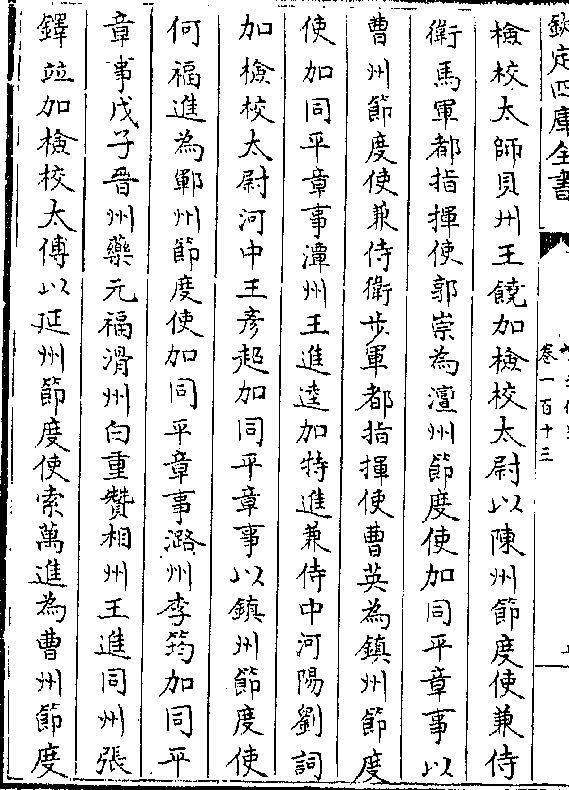 欽定四庫全書
卷一百十三
檢校太師貝州王饒加檢校太尉以陳州節度使兼侍
衛馬軍都指揮使郭崇為澶州節度使加同平章事以
曹州節度使兼侍衛步軍都指揮使曹英為鎮州節度
使加同平章事潭州王進逵加特進兼侍中河陽劉詞
加檢校太尉河中王彥超加同平章事以鎮州節度使
何福進為鄆州節度使加同平章事潞州李筠加同平
章事戊子晉州藥元福滑州白重贊相州王進同州張
鐸竝加檢校太傅以延州節度使索萬進為曹州節度